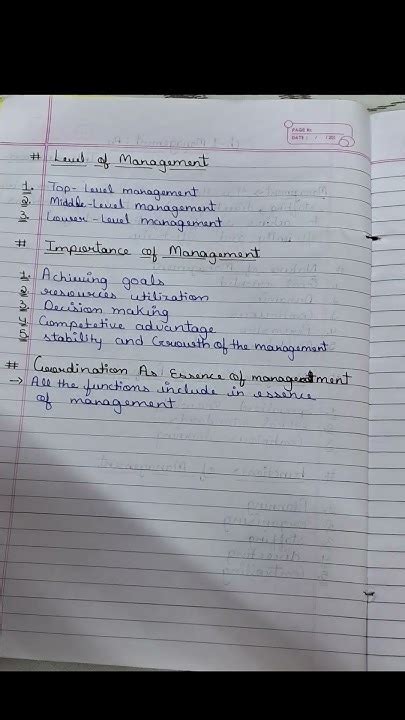 PAGE No.
DATE : / / 20
# Level of Management
1. Top-Level management
2. Middle-Level management
3. Louser-Level management
# Importance of Management
1. Achieving goals
2 resources utilization
3. Decision making
4 Competetive advantage
5 stability and Growth of the management
# Coordination As Essence of management
→ All the functions include in essence
of management